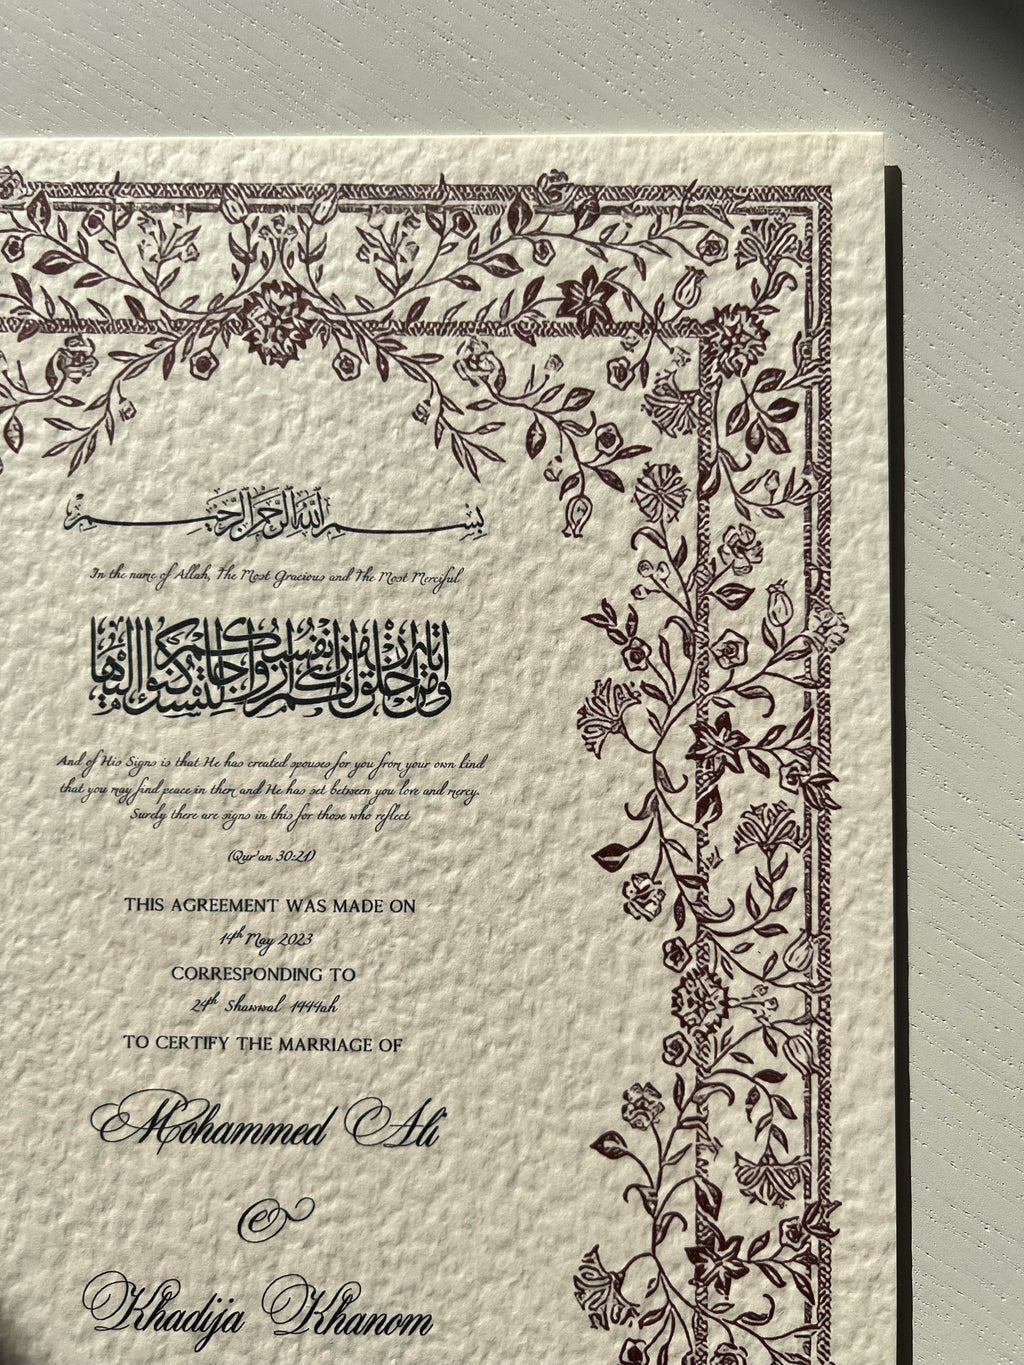 بِسْمِ اللَّهِ الرَّحْمَٰنِ الرَّحِيمِ
In the name of Allah, The Most Gracious and The Most Merciful
ومن آياته أن خلق لكم من أنفسكم أزواجا لتسكنوا إليها
And of His Signs is that He has created spouses for you from your own kind
that you may find peace in them and He has set between you love and mercy.
Surely there are signs in this for those who reflect
(Qur'an 30:21)
THIS AGREEMENT WAS MADE ON
14th May 2023
CORRESPONDING TO
24th Shawwal 1444ah
TO CERTIFY THE MARRIAGE OF
Mohammed Ali
&
Khadija Khanom